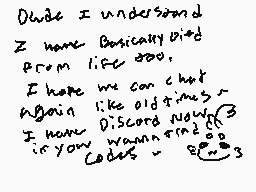 Dude I understand
I have Basically Died
From life too.
I hope me can chat
again like old times ~
I have Discord Now
if your wanna trade
Codes ~